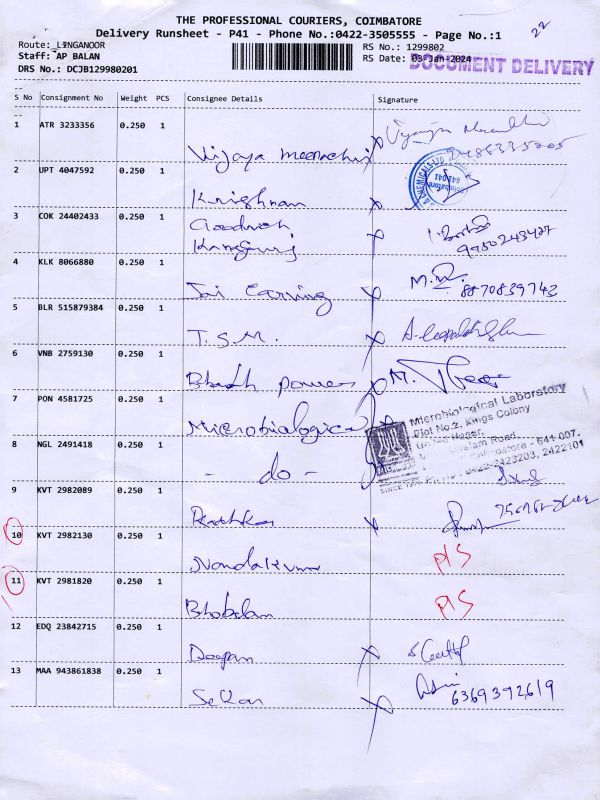 THE PROFESSIONAL COURIERS, COIMBATORE
Delivery Runsheet - P41 - Phone No.:0422-3505555 - Page No.:1
22
Route: LINGANOOR
RS No.: 1299802
Staff: AP BALAN
RS Date: 03-Jan-2024
DOCUMENT DELIVERY
DRS No.: DCJB129980201
S No Consignment No Weight PCS Consignee Details Signature
1 ATR 3233356 0.250 1
Vijaya meenachi
2 UPT 4047592 0.250 1
Krishnan
Coimbatore
641 041
3 COK 24402433 0.250 1
Goodwoh
4 KLK 8066880 0.250 1
Sai Earning
M.
8870839743
5 BLR 515879384 0.250 1
T.S.M.
6 VNB 2759130 0.250 1
Bharth power
M.
7 PON 4581725 0.250 1
Microbiological
Microbiological Laboratory
Plot No.2, Kings Colony
United Nagar,
8 NGL 2491418 0.250 1
- do -
Coimbatore - 641 007.
0422-2423203, 2422101
SINCE
9 KVT 2982089 0.250 1
10 KVT 2982130 0.250 1
Nandakumar
P/S
11 KVT 2981820 0.250 1
P/S
12 EDQ 23842715 0.250 1
Deepan
13 MAA 943861838 0.250 1
Sekar
6369392619